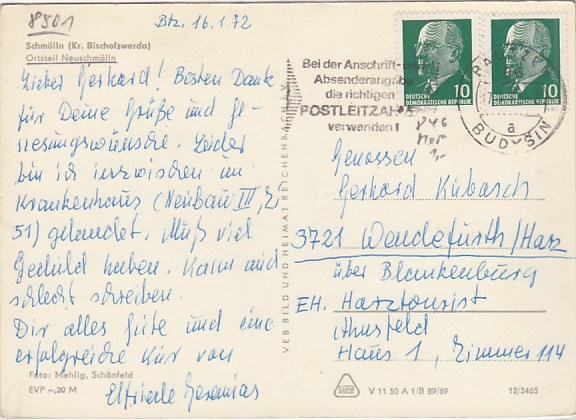 8501
Btz. 16.1.72
Schmölln (Kr. Bischofswerda)
Ortsteil Neuschmölln
Lieber Gerhard! Besten Dank
für Deine Grüße und Ge-
nesungswünsche. Leider
bin ich inzwischen im
Krankenhaus (Neubau III, Zi
51) gelandet. Muß viel
Geduld haben. Kann und
schlecht schreiben.
Dir alles Gute und eine
erfolgreiche Kur von
Elfriede Jeremias
Foto: Mehlig, Schönfeld
EVP –,20 M
VEB BILD UND HEIMAT REICHENBACH
Bei der Anschrift- und
Absenderangabe
die richtigen
POSTLEITZAHLEN
verwenden!
BUDYŠIN
a
10
DEUTSCHE
DEMOKRATISCHE REPUBLIK
10
DEUTSCHE
DEMOKRATISCHE REPUBLIK
Genossen
Gerhard Kubasch
3721 Wendefurth/Harz
über Blankenburg
EH. Harztourist
Haus 1, Zimmer 114
V 11 50 A 1/B 89/69
12/3465